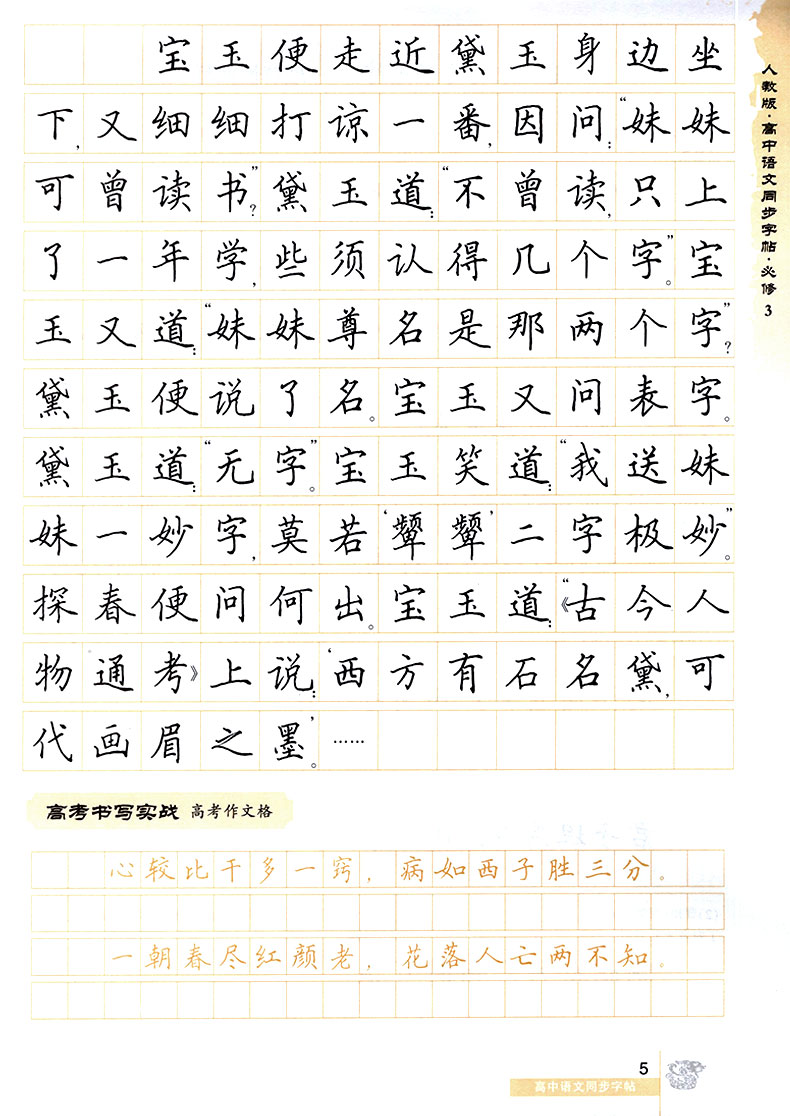 宝玉便走近黛玉身边坐
下,又细细打谅一番,因问:“妹妹
可曾读书”?黛玉道:“不曾读,只上
了一年学,些须认得几个字”。宝
玉又道:“妹妹尊名是那两个字”?
黛玉便说了名。宝玉又问表字。
黛玉道:“无字”。宝玉笑道:“我送妹
妹一妙字,莫若‘颦颦’二字极妙”。
探春便问何出。宝玉道:“《古今人
物通考》上说:‘西方有石名黛,可
代画眉之墨’。……
高考书写实战 高考作文格
心较比干多一窍，病如西子胜三分。
一朝春尽红颜老，花落人亡两不知。
人教版·高中语文同步字帖·必修3
5
高中语文同步字帖